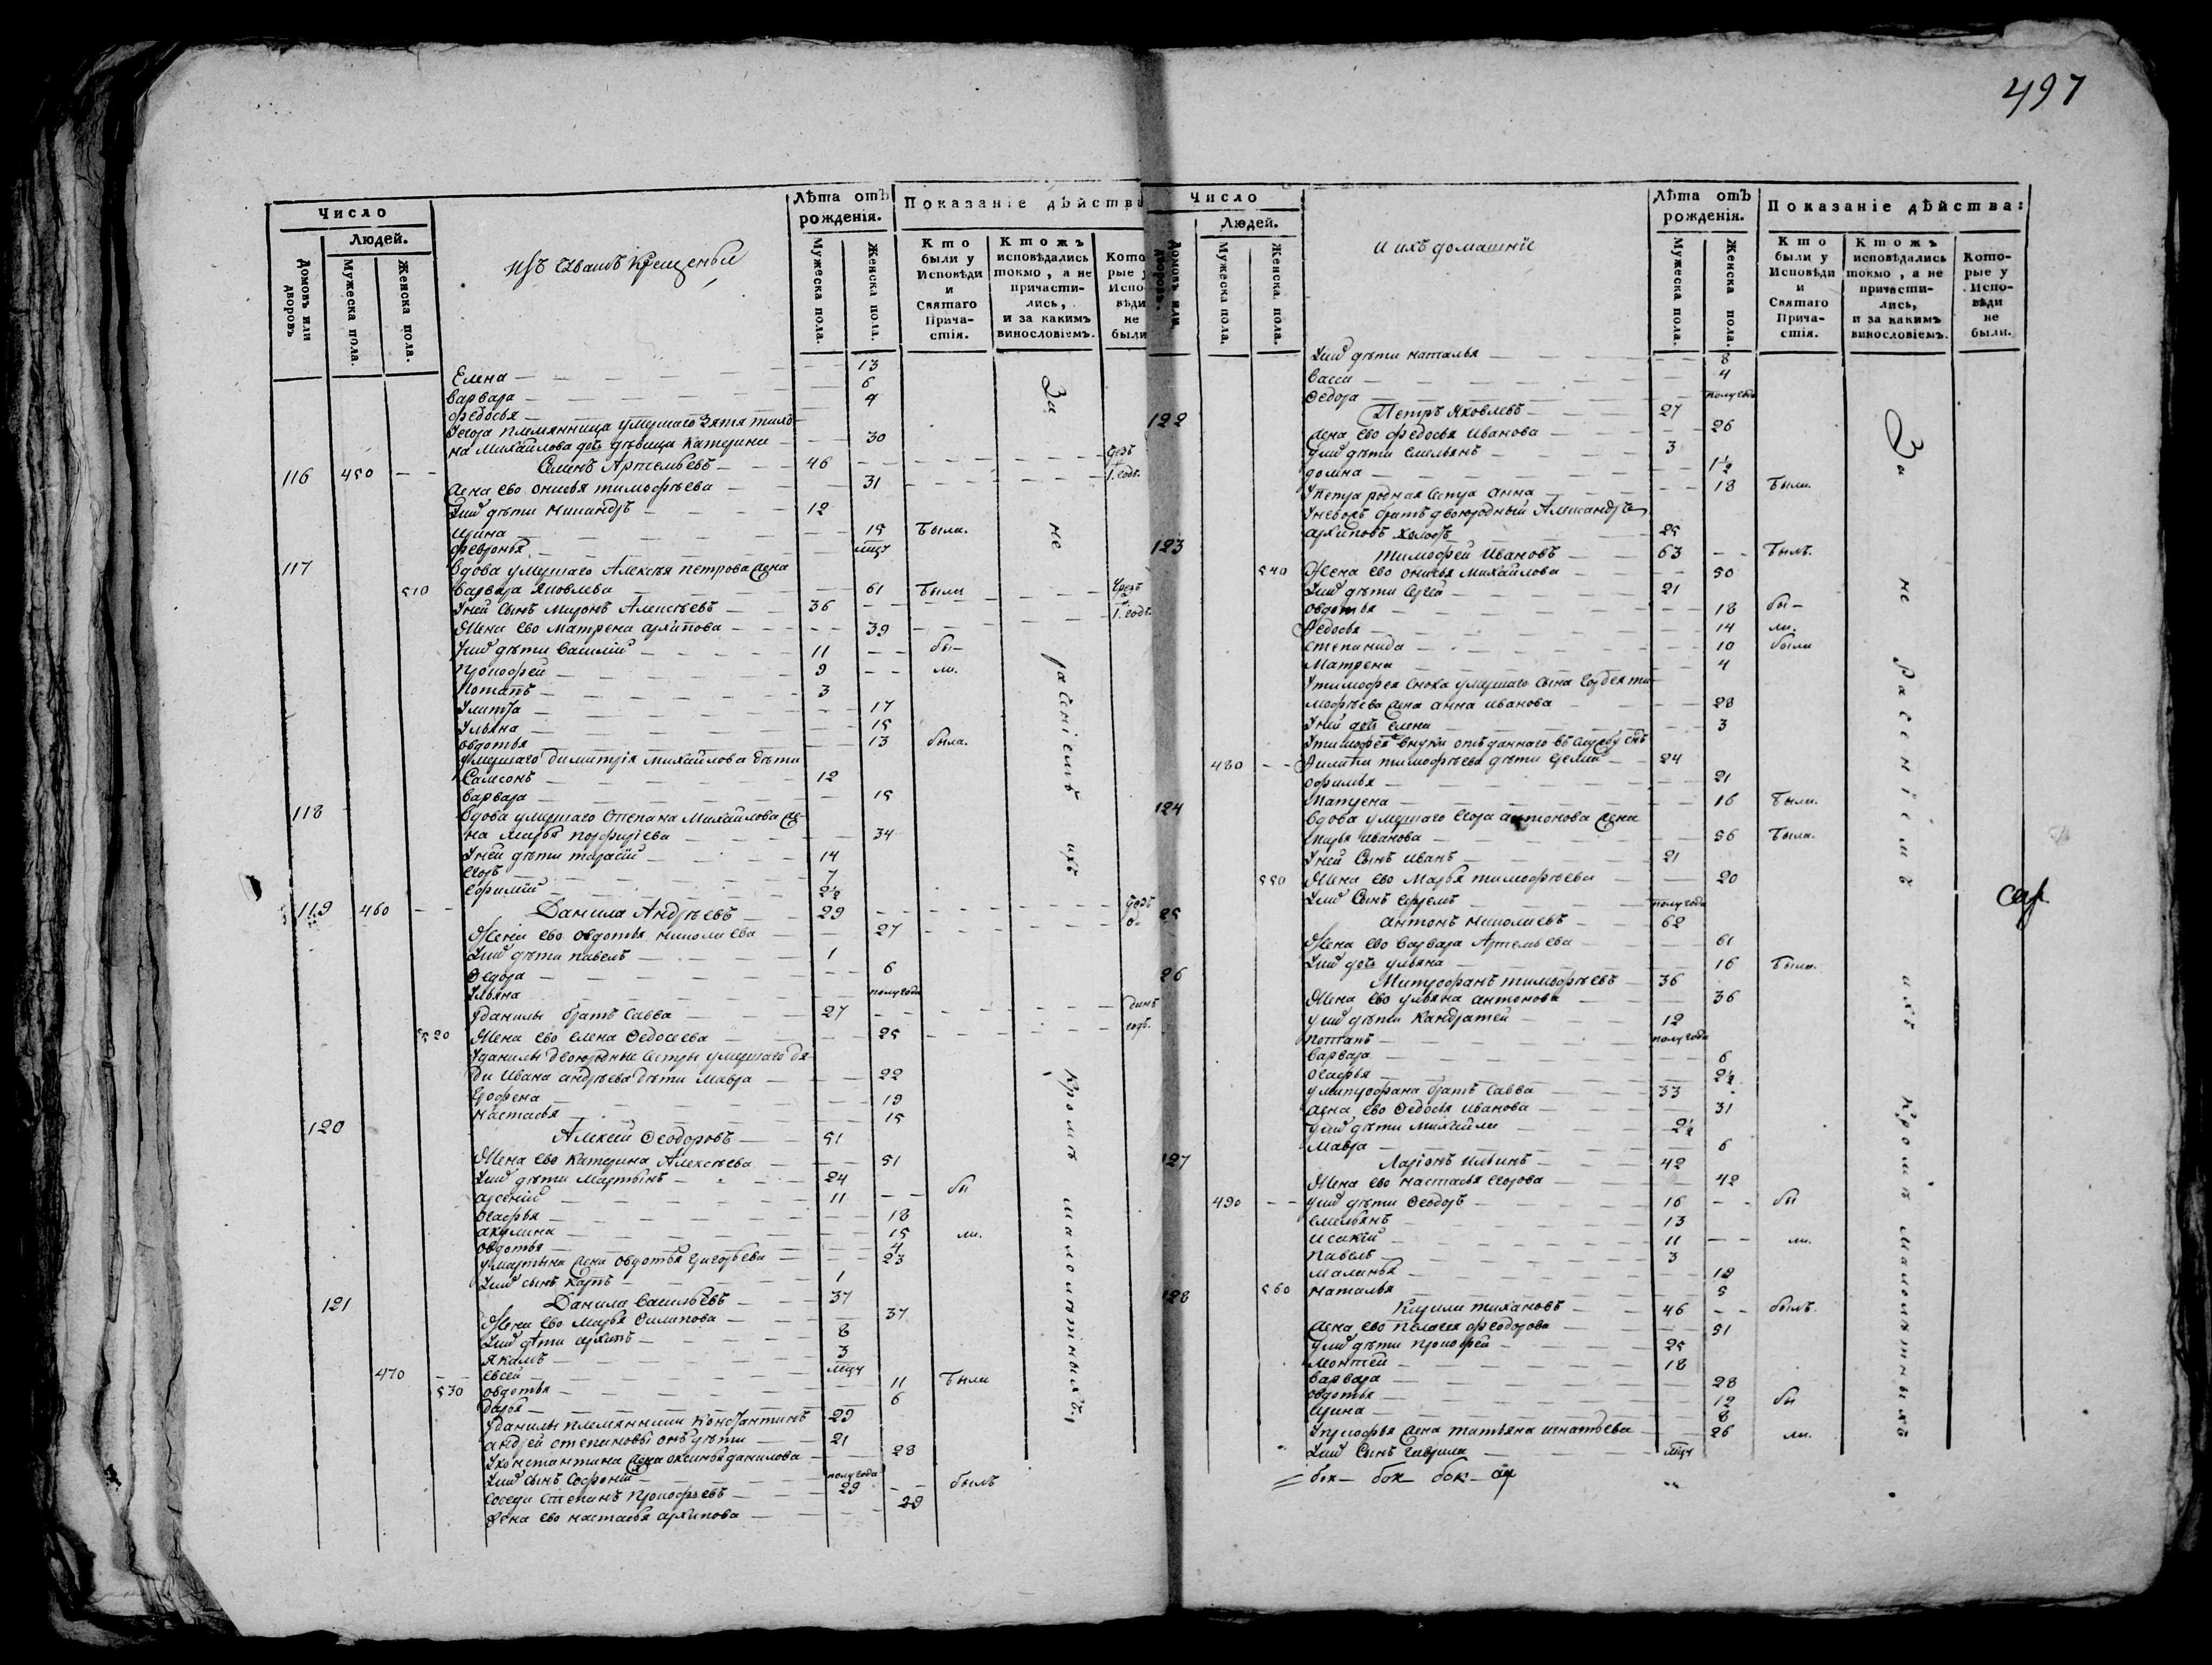 497
Число
Людей.
Домовъ или дворовъ
Мужеска пола.
Женска пола.
изъ Чувашъ Крещеныя
Лѣта отъ рожденія.
Мужеска пола.
Женска пола.
Показаніе дѣйства
Кто были у Исповѣди и Святаго Причастія.
Ктожъ исповѣдались токмо, а не причастились, и за какимъ винословіемъ.
Которые у Исповѣди не были
Елена 13
Варвара 6
Федосья 4
Михайлова дочь дѣвица Катерина 30
116 450 Семенъ Артемьевъ 46
Жена ево Онисья Тимофѣева 31 1. годъ.
У нихъ дѣти Никандръ 12
Ирина 15 была.
Февронья
117 Вдова умершаго Алексѣя Петрова жена
510 Варвара Яковлева 61 были
У ней сынъ Миронъ Алексѣевъ 36
Жена ево Матрена Архипова 39 1. годъ.
У нихъ дѣти Василій 11 бы-
Прокофей 9 ли.
Потапъ 3
Улита 17
Ульяна 15
Овдотья 13 была.
умершаго Димитрія Михайлова дѣти
Самсонъ 12
Варвара 15
118 Вдова умершаго Степана Михайлова же-
на Марья Порфиріева 34
У ней дѣти Тарасій 14
Егоръ 7
Ефимій 2½
119 460 Данила Андрѣевъ 29
Жена ево Овдотья Николаева 27
У нихъ дѣти Павелъ 1
Федора 6
Ульяна полугода
У Данилы братъ Савва 27
520 Жена ево Елена Федосеева 25 годъ.
У Данилы двоюродные сестры умершаго дя-
ди Ивана Андрѣева дѣти Мавра 22
Настасья 15
120 Алексѣй Феодоровъ 51
Жена ево Катерина Алексѣева 51
У нихъ дѣти Мартынъ 24
Арсений 11 бы
Агафья 18
Акулина 15 ли.
Овдотья 4
У Мартына жена Овдотья Григорьева 23
У нихъ сынъ Карпъ 1
121 Данила Васильевъ 37
Жена ево Марья Филипова 37
У нихъ дѣти Архипъ 8
Якимъ 3
470 Евсей
530 Овдотья 11 были
Дарья 6
У Данилы племянники Константинъ 29
Андрей Степановы онѣ дѣти 21
У Константина жена Оксинья Данилова 28
У нихъ сынъ Софронъ полугода
Соседъ Степанъ Прокофьевъ 29 былъ
Жена ево Настасья Архипова 29
За не раченіемъ ихъ Кромѣ малолѣтныхъ.
Число
Людей.
Домовъ или дворовъ.
Мужеска пола.
Женска пола.
и ихъ домашніе
Лѣта отъ рожденія.
Мужеска пола.
Женска пола.
Показаніе дѣйства:
Кто были у Исповѣди и Святаго Причастія.
Ктожъ исповѣдались токмо, а не причастились, и за какимъ винословіемъ.
Которые у Исповѣди не были.
У нихъ дѣти Наталья 8
Васса 4
Федора полугода
122 Петръ Яковлевъ 27
Жена ево Федосья Иванова 26
У нихъ дѣти Емельянъ 3
Домна 1½
У Петра родная сестра Анна 18 были.
двоюродный Александръ
Архиповъ холостъ 25
123 Тимофей Ивановъ 63 былъ.
540 Жена ево Онисья Михайлова 50
У нихъ дѣти Сергей 21
Овдотья 18 бы-
Федосья 14 ли.
Степанида 10 были
Матрена 4
У Тимофея сноха умершаго сына
мофѣева жена Анна Иванова 28
У ней дочь Елена 3
480 Филипа Тимофѣева дѣти 24
Офимья 21
Матрена 16 были.
124 Вдова умершаго Егора Антонова жена
Марья Иванова 56 была.
У ней сынъ Иванъ 21
550 Жена ево Марья Тимофѣева 20
У нихъ сынъ Ефремъ полугода
25 Антонъ Николаевъ 62
Жена ево Варвара Артемьева 61
У нихъ дочь Ульяна 16 была.
26 Митрофанъ Тимофѣевъ 36
Жена ево Ульяна Антонова 36
У нихъ дѣти Кандратей 12
Потапъ полугода
Варвара 6
Агафья 2½
У Митрофана братъ Савва 33
Жена ево Федосья Иванова 31
У нихъ дѣти Михайла 2½
Мавра 6
127 Ларіонъ Ильинъ 42
Жена ево Настасья Егорова 42
490 У нихъ дѣти Феодоръ 16 бы
Емельянъ 13
Исакій 11 ли.
Павелъ 3
Маланья 12
560 Наталья 5
128 Кирила Тихановъ 46 былъ.
Жена ево Пелагея Феодорова 51
У нихъ дѣти Прокофей 25
Леонтей 18
Варвара 28
Овдотья 12 бы
Ирина 8
У Прокофья жена Татьяна Игнатьева 26 ли.
У нихъ сынъ Гаврила
За не раченіемъ ихъ Кромѣ малолѣтныхъ